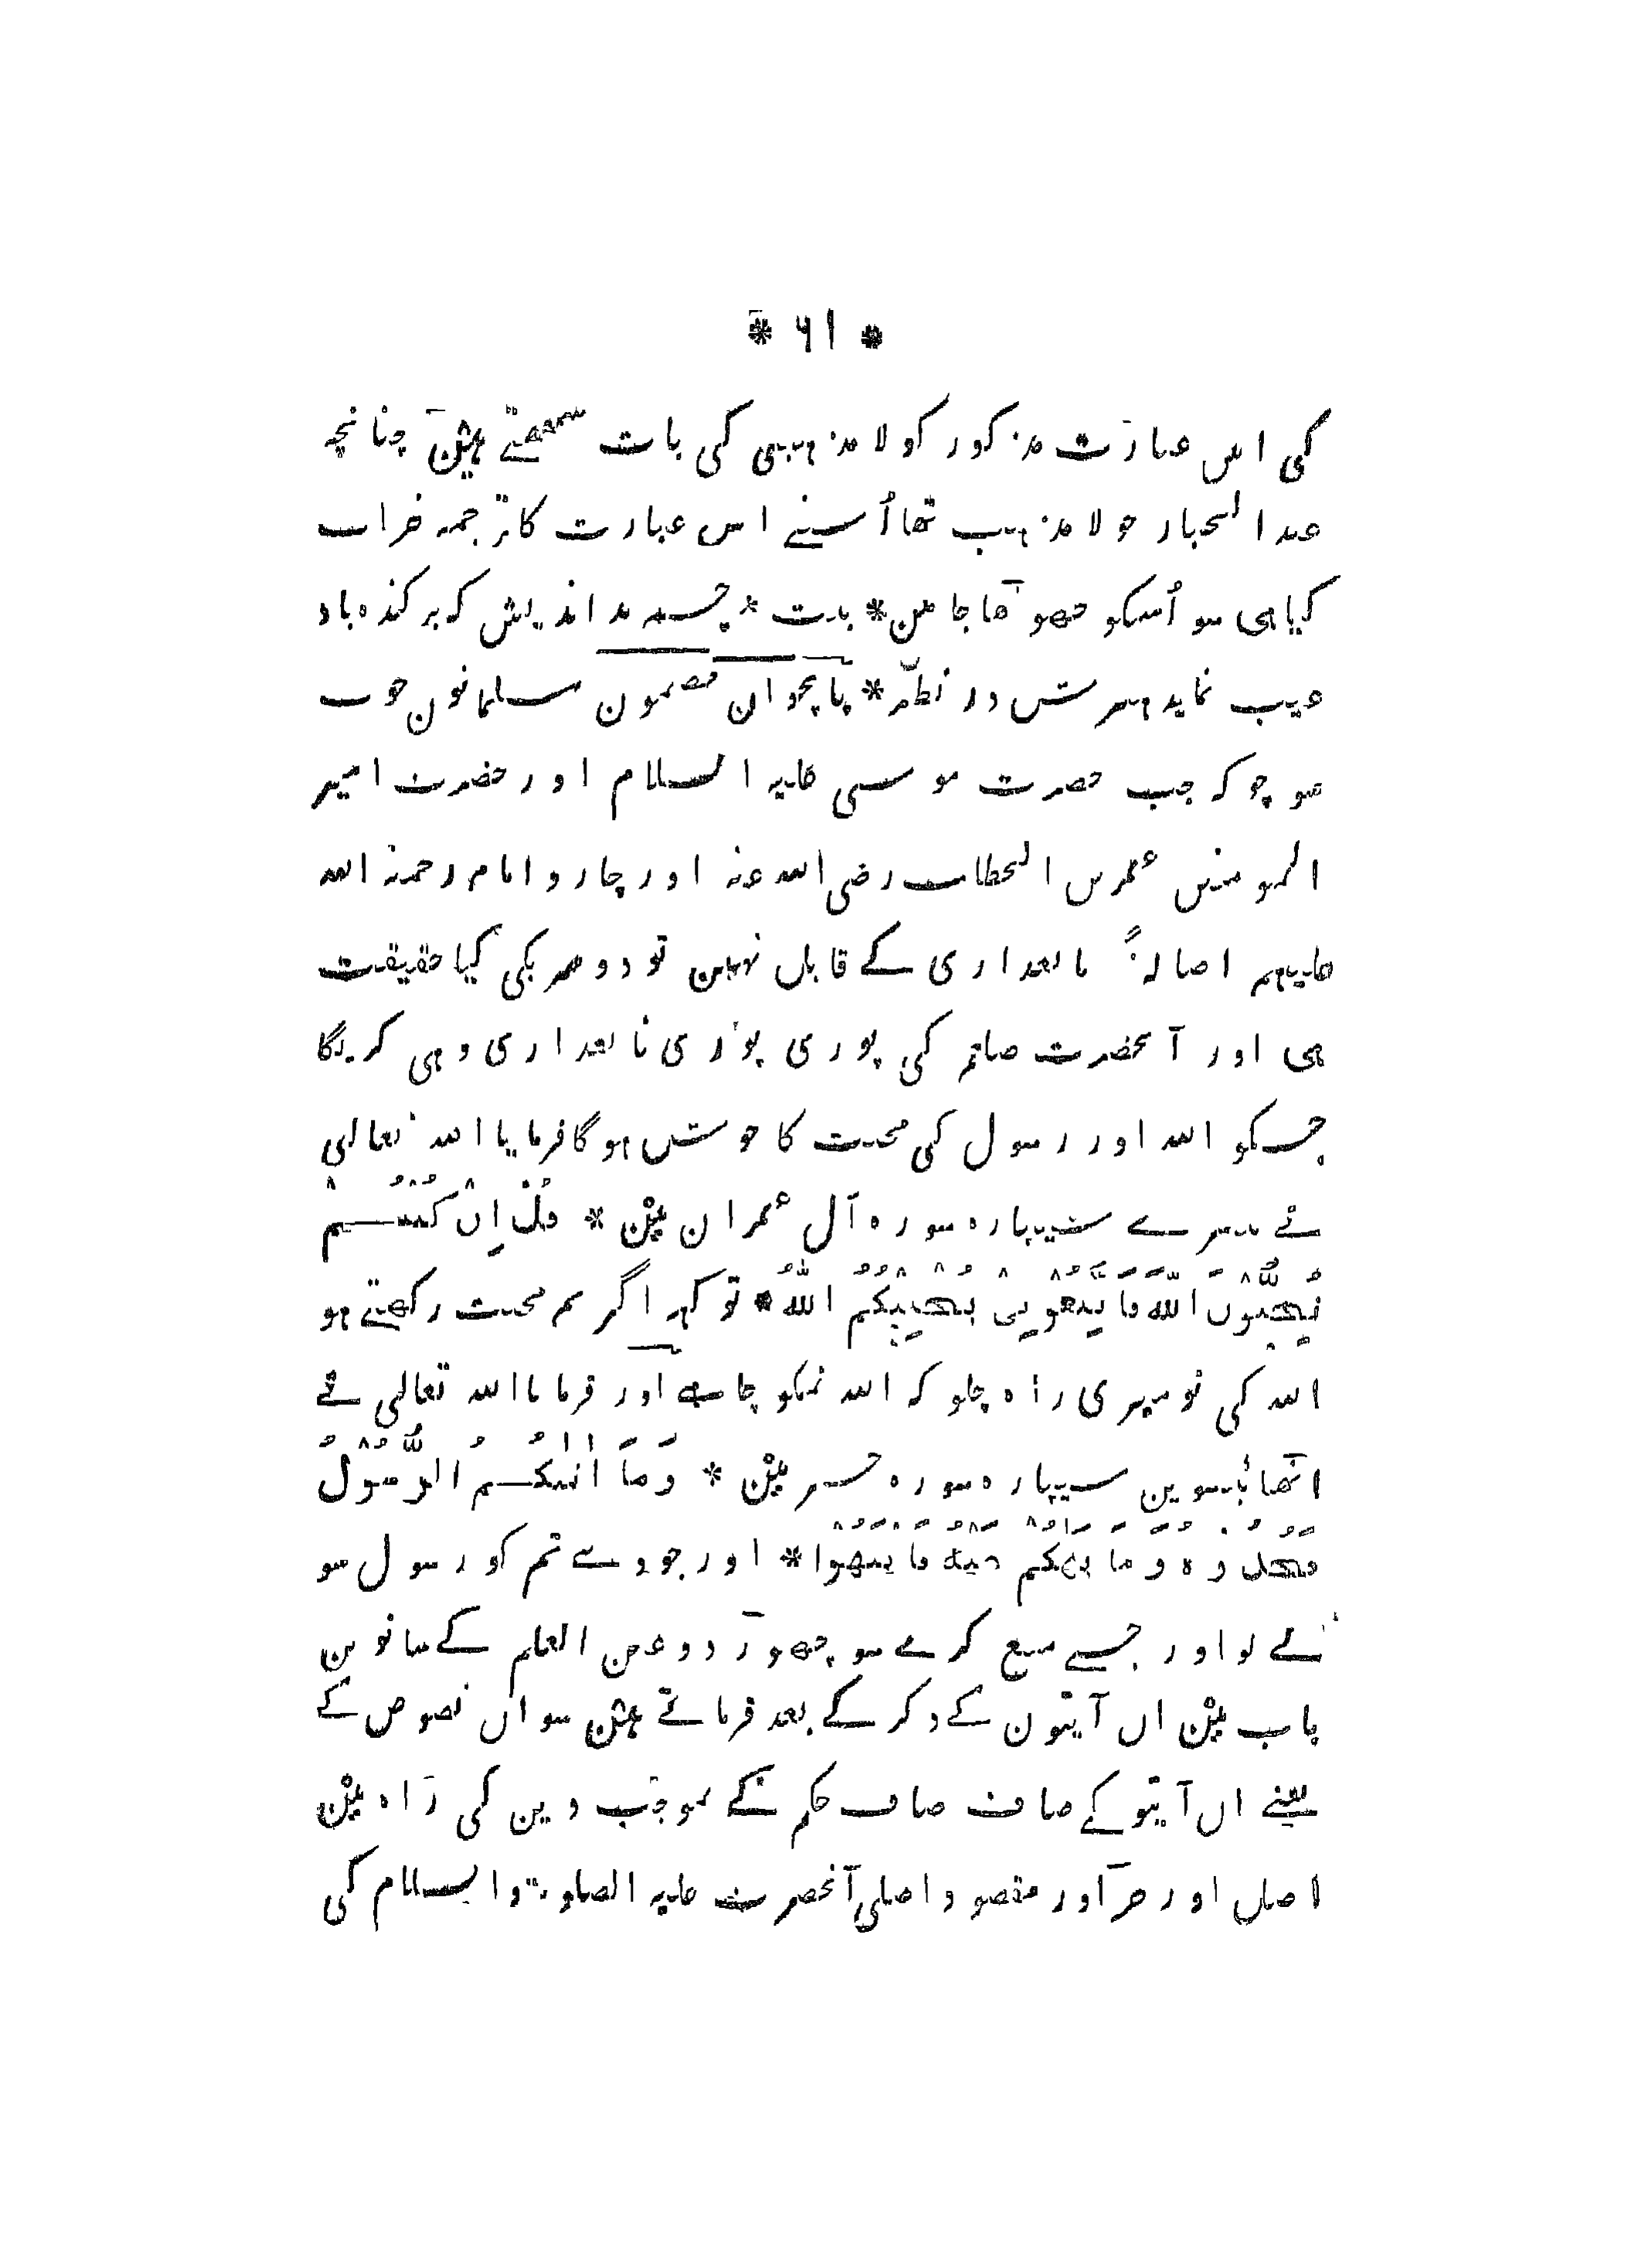 * ٦١ *
کی اس عبارت مذکور کو لا مذہبی کی بات سمجھتے ہین چنانچہ
عبد الجبار جو لا مذہب تھا اُسنے اس عبارت کا ترجمہ خراب
کیا ہی سو اُسکو جھوٹھا جانین * بیت * چشم بد اندیش کہ برکندہ باد
عیب نماید ہنرش در نظر * پانچوان مضمون مسلمانون خوب
سوچو کہ جب حضرت موسی علیہ السلام اور حضرت امیر
المومنین عمر بن الخطاب رضی اللہ عنہ اور چارو امام رحمۃ اللہ
علیہم اصالۃً تابعداری کے قابل نہین تو دوسریکی کیا حقیقت
ہی اور آنحضرت صلعم کی پوری پوری تابعداری وہی کریگا
جسکو اللہ اور رسول کی محبت کا جوش ہوگا فرمایا اللہ تعالی
نے تیسرے سیپارہ سورہ آل عمران مین * قُلْ اِنْ كُنْتُمْ
تُحِبُّوْنَ اللّٰهَ فَاتَّبِعُوْنِيْ يُحْبِبْكُمُ اللّٰهُ * تو کہہ اگر تم محبت رکھتے ہو
اللہ کی تو میری راہ چلو کہ اللہ تمکو چاہے اور فرمایا اللہ تعالی نے
اٹھائیسوین سیپارہ سورہ حشر مین * وَمَا اٰتٰىكُمُ الرَّسُوْلُ
فَخُذُوْهُ وَمَا نَهٰىكُمْ عَنْهُ فَانْتَهُوْا * اور جو دے تم کو رسول سو
لے لو اور جسے منع کرے سو چھوڑ دو عین العلم کے سانوین
باب مین ان آیتون کے ذکر کے بعد فرماتے ہین سو ان نصوص کے
یعنے ان آیتو کے صاف صاف حکم کے بموجب دین کی راہ مین
اصل اور جڑ اور مقصود اصلی آنحضرت علیہ الصلوۃ والسلام کی